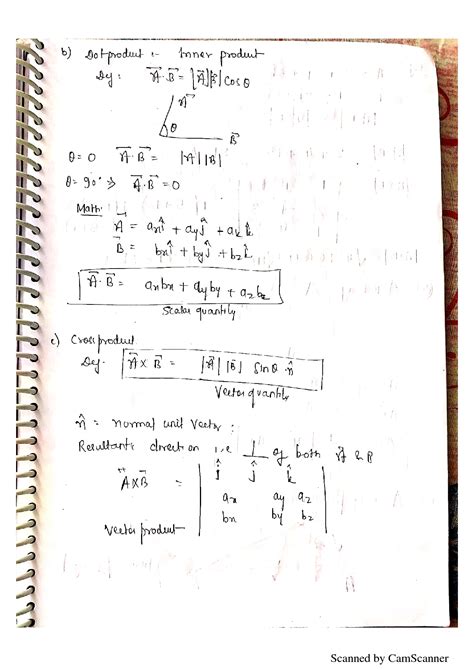 b) Dot product :- Inner product
Def : A⃗·B⃗ = |A⃗||B⃗| cos θ
A⃗
θ
B⃗
θ = 0 A⃗·B⃗ = |A||B|
θ = 90° ⇒ A⃗·B⃗ = 0
Math:
A⃗ = axî + ayĵ + azk̂
B⃗ = bxî + byĵ + bzk̂
A⃗·B⃗ = axbx + ayby + azbz
Scalar quantity
c) Cross product
Def- A⃗ × B⃗ = |A⃗| |B⃗| sin θ · n̂
Vector quantity
n̂ = normal unit vector :
Resultant's direction i.e ⊥ of both A⃗ & B
A⃗×B⃗ = î ĵ k̂
ax ay az
bx by bz
Vector product
Scanned by CamScanner